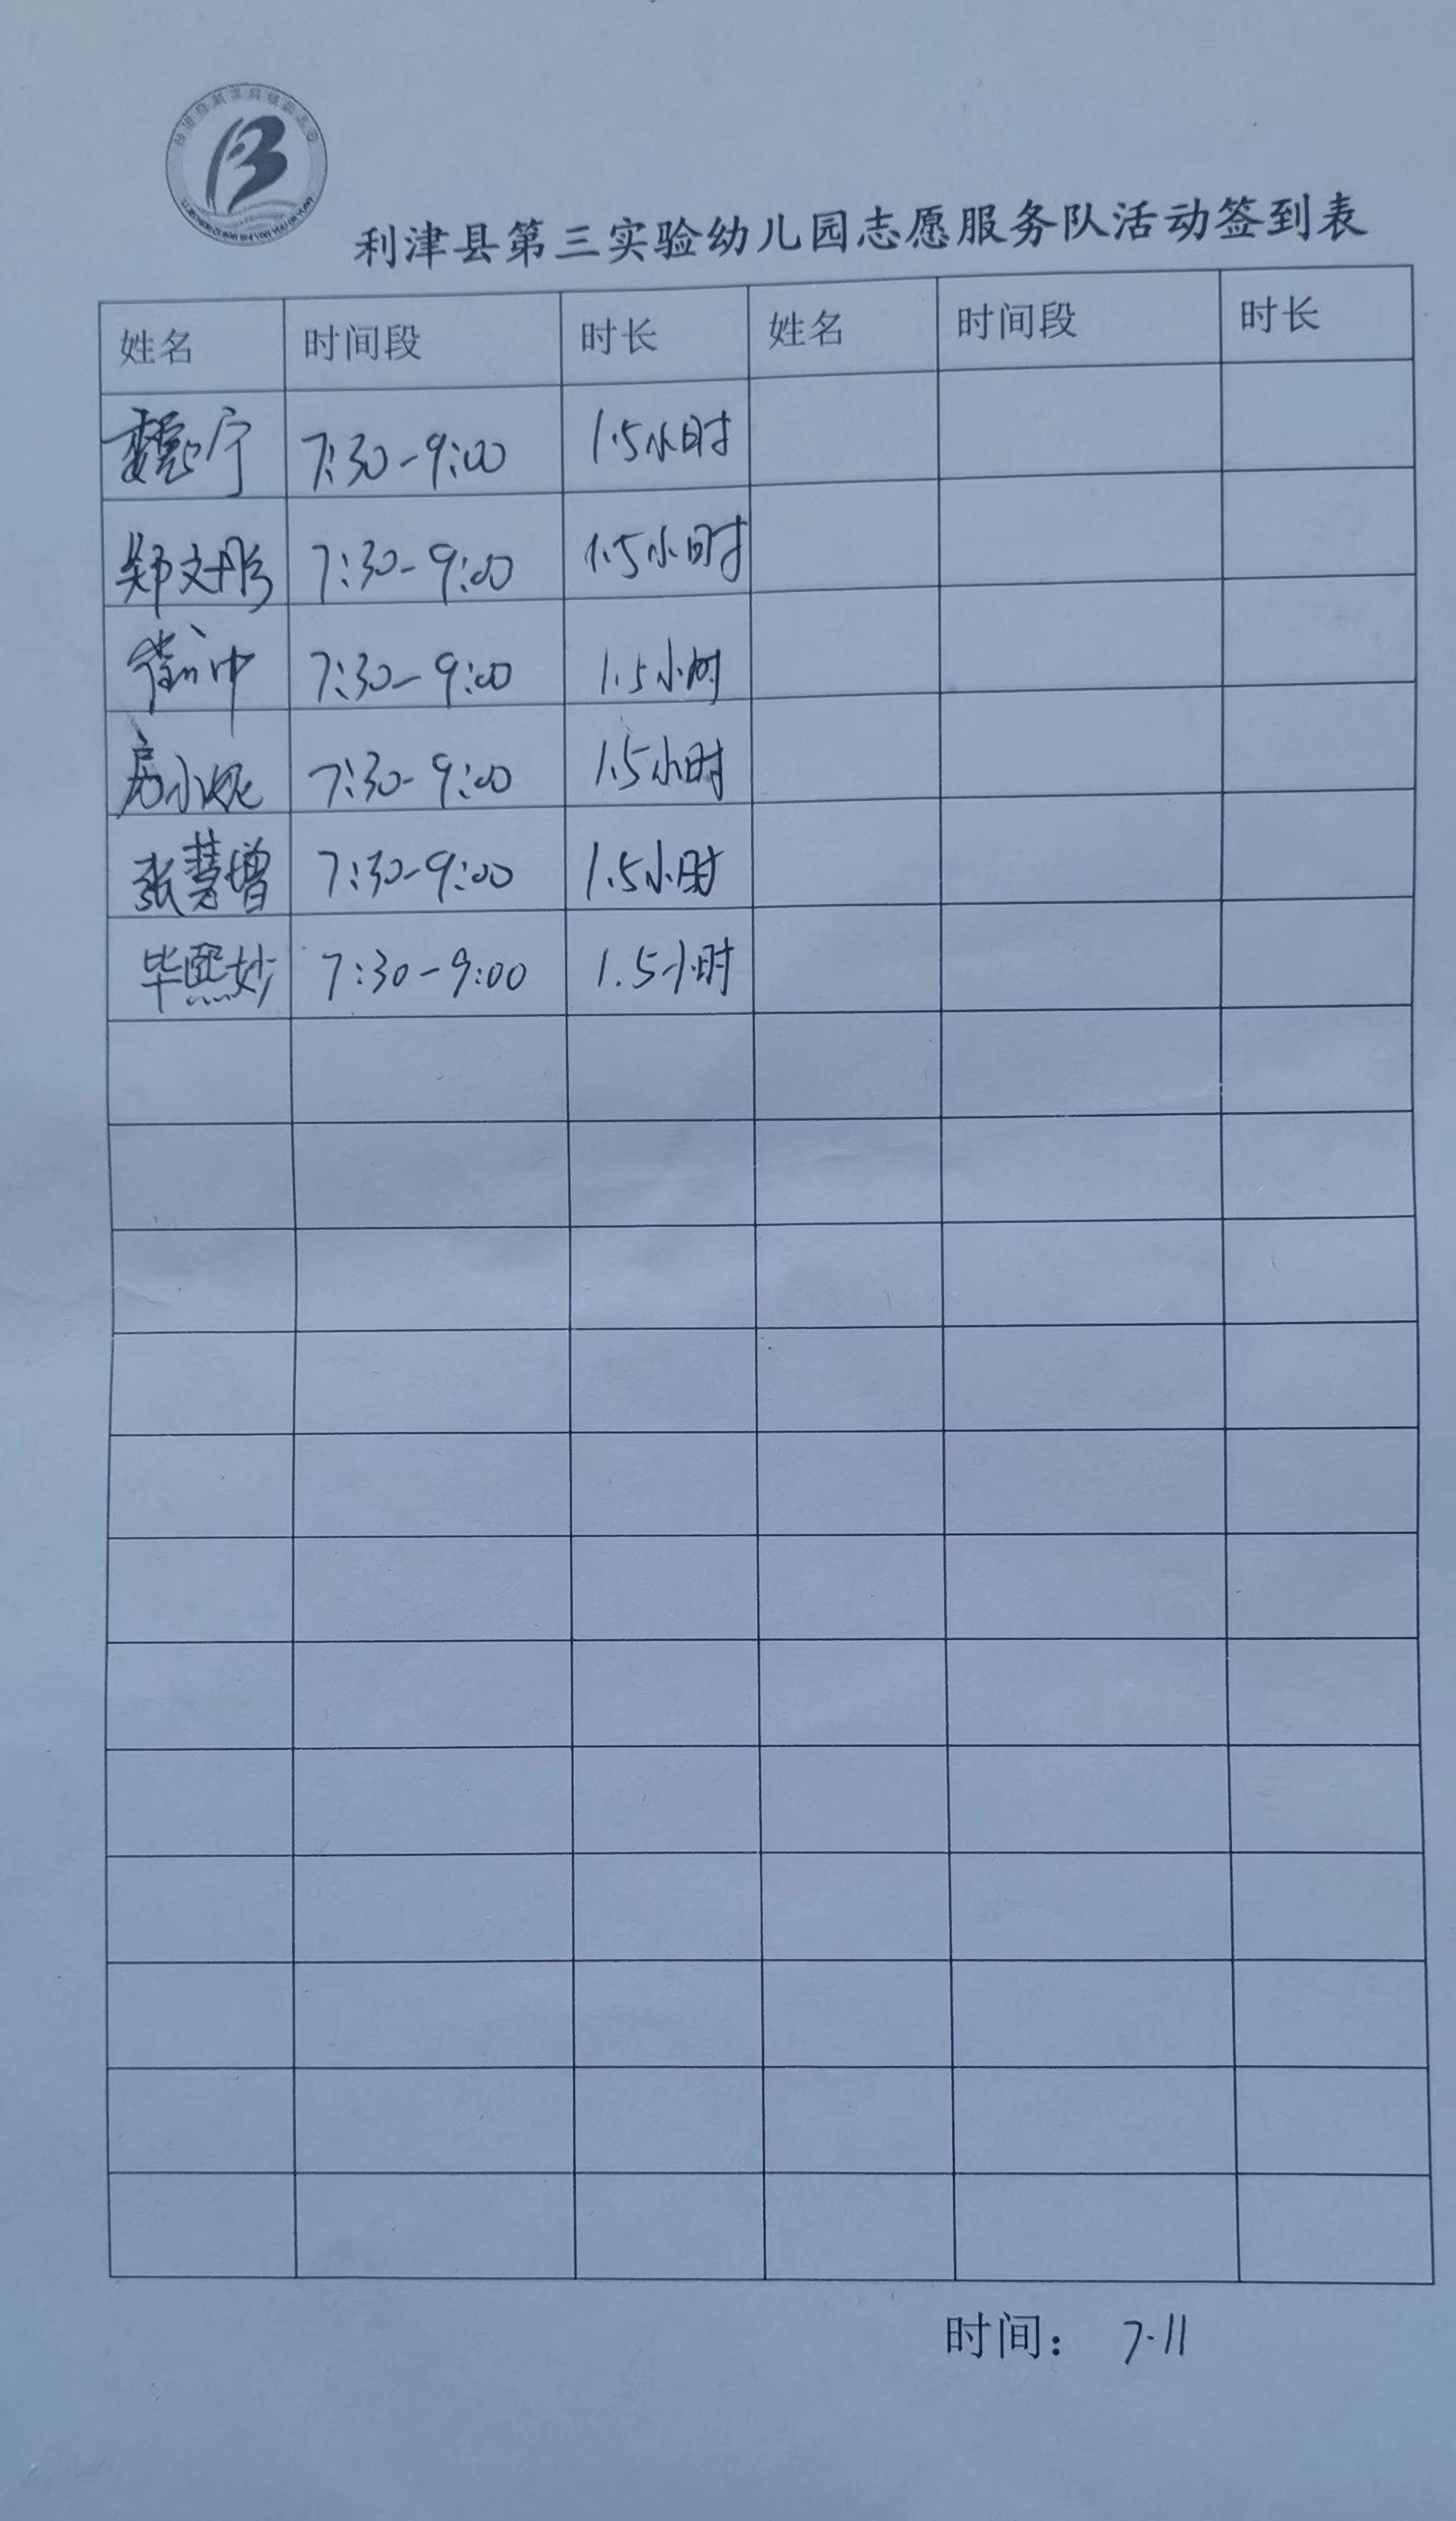 利津县第三实验幼儿园志愿服务队活动签到表
姓名 时间段 时长 姓名 时间段 时长
魏宁 7:30-9:00 1.5小时
郑文彤 7:30-9:00 1.5小时
7:30-9:00 1.5小时
房小妮 7:30-9:00 1.5小时
张慧增 7:30-9:00 1.5小时
毕熙妙 7:30-9:00 1.5小时
时间： 7.11